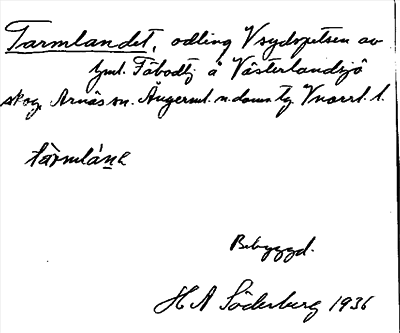 Tarmlandet, odling V sydspetsen av
Gml. Fäbodtj å Västerlandsjö
skog, Arnäs sn. Ångerml. n. doms tg. Vnorrl. l.
Bebyggd.
H A Söderberg 1936